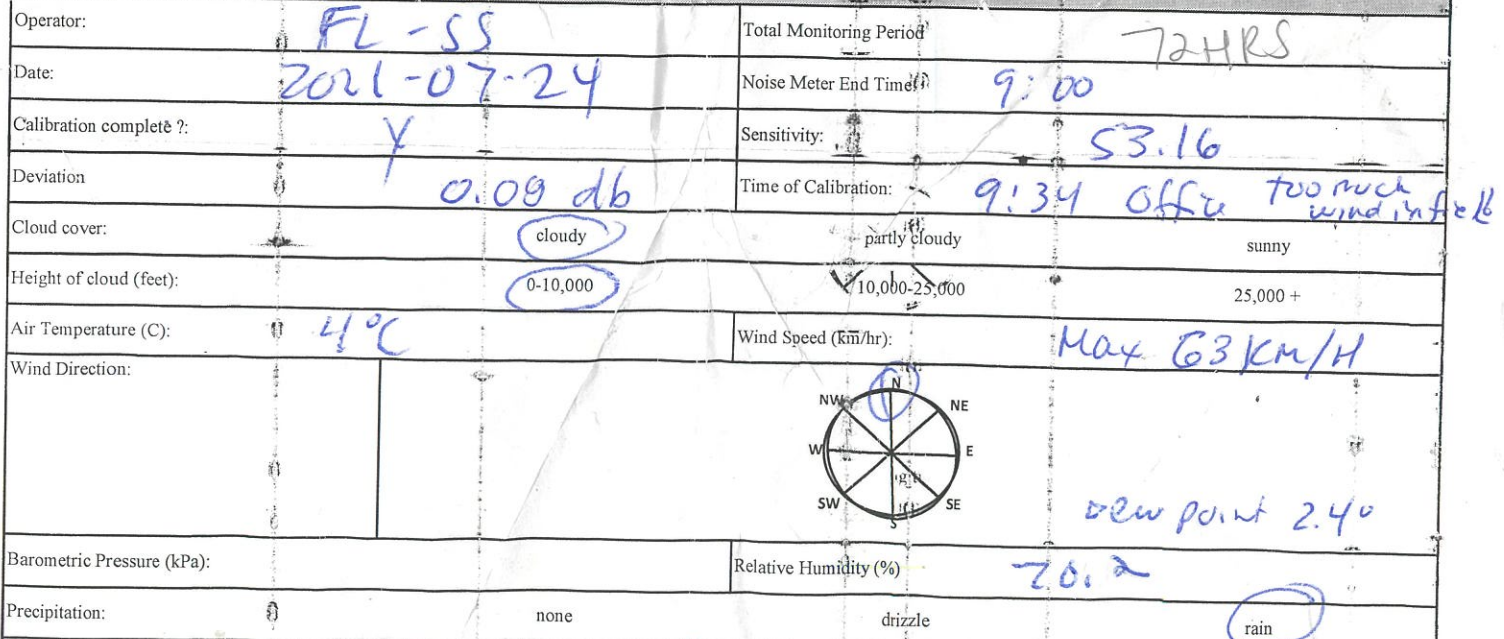 Operator: FL-SS Total Monitoring Period 72HRS
Date: 2021-07-24 Noise Meter End Time: 9:00
Calibration complete ?: Y Sensitivity: 53.16
Deviation 0.09 db Time of Calibration: 9:34 Office too much wind in field
Cloud cover: cloudy partly cloudy sunny
Height of cloud (feet): 0-10,000 10,000-25,000 25,000 +
Air Temperature (C): 4°C Wind Speed (km/hr): Max 63 KM/H
Wind Direction:
N
NW NE
W E
SW SE
S
Dew point 2.4°
Barometric Pressure (kPa): Relative Humidity (%) 70.2
Precipitation: none drizzle rain